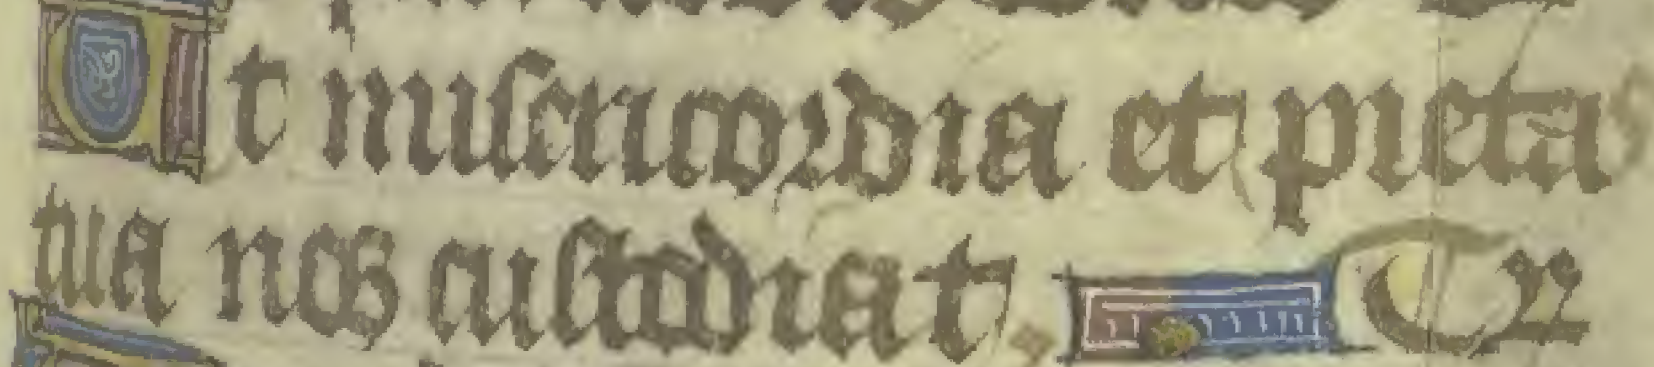 Et misericordia et pietas
tua nos custodiat.